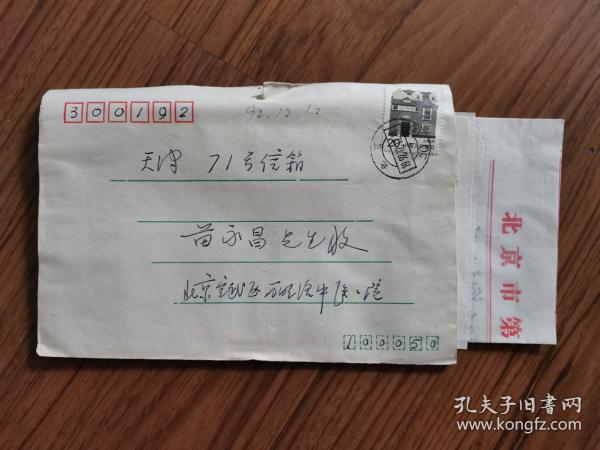 300192
92.12.12
天津 71号信箱
苗永昌先生收
北京宣武区万明路中医医院
100050
北京市第
孔夫子旧书网
www.kongfz.com